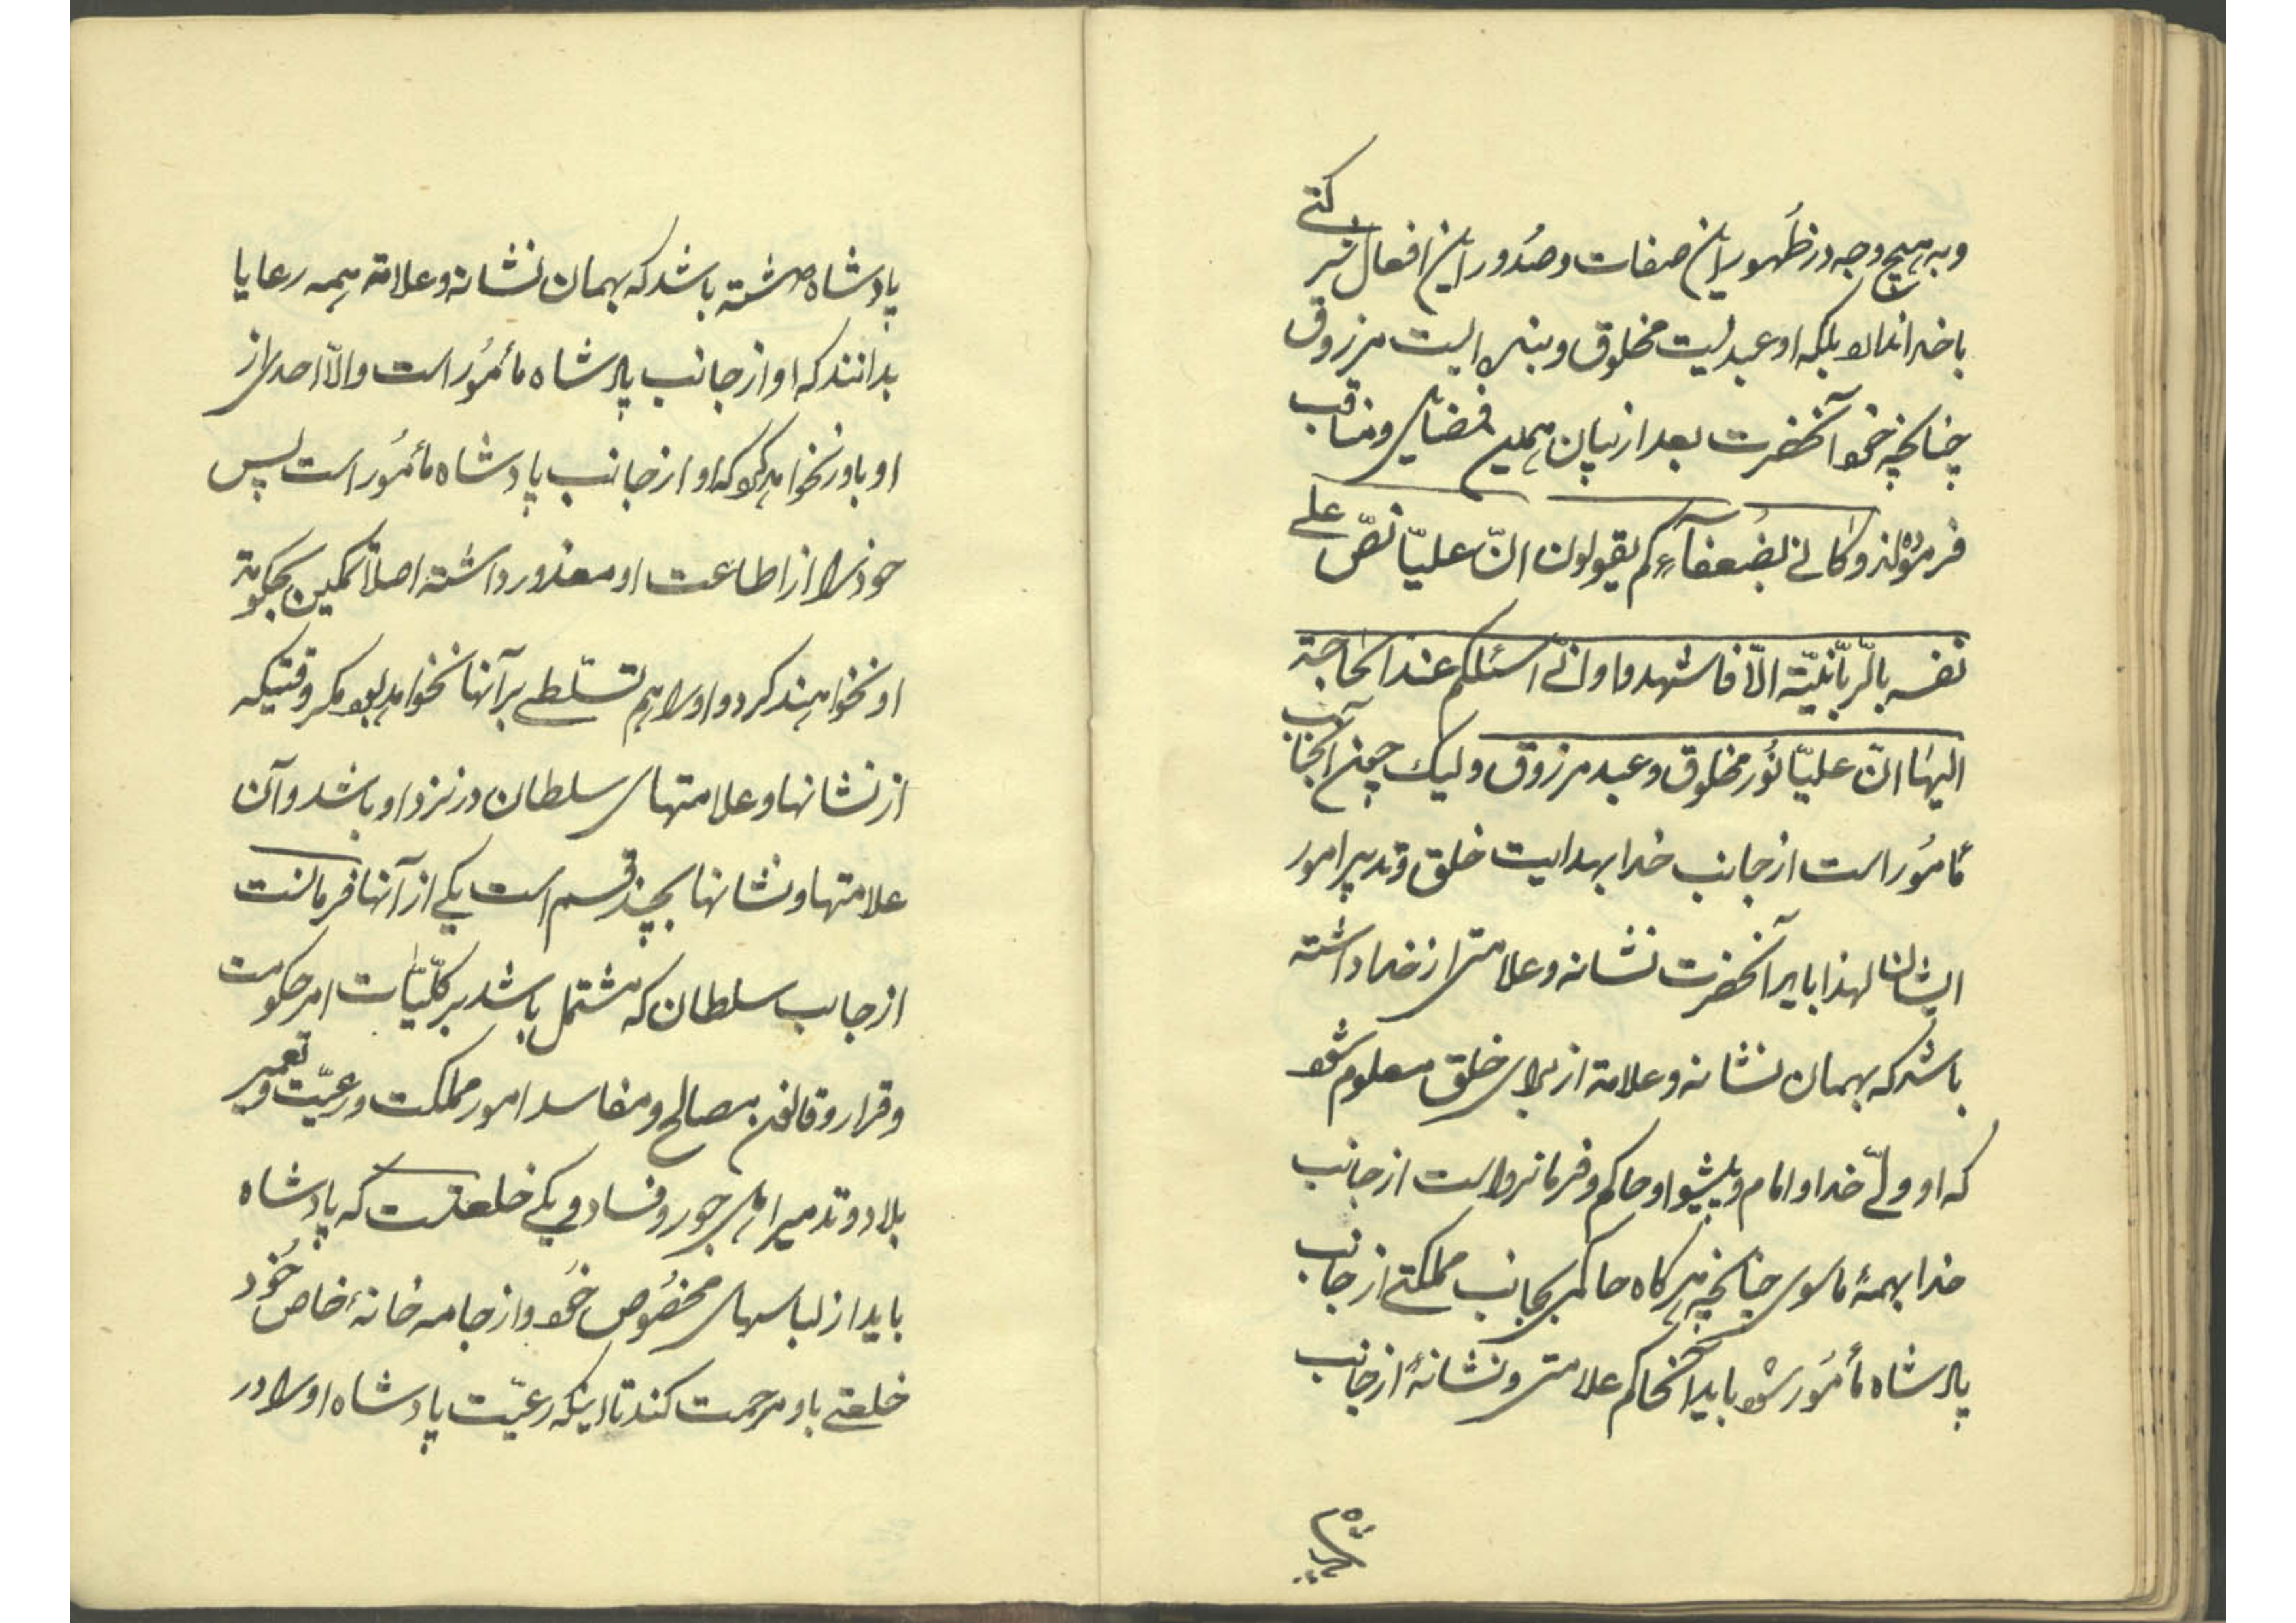 و به هیچ وجه در ظهور این صفات و صدور این افعال شرکتی
با خدا ندارد بلکه او عبدیست مخلوق و بنده ایست مرزوق
چنانچه خود آنحضرت بعد از بیان همین فضایل و مناقب
فرموده‌اند و کانّی بضُعفآءِکم یقولون انّ علیّا نصّ علی
نفسه بالرّبّانیّة الّا فاشهدوا و انّی اسئلکم عند الحاجة
الیها انّ علیّا نُور مخلوق و عبد مرزوق ولیک چون آنجناب
مامُور است از جانب خدا بهدایت خلق و تدبیر امور
ایشان لهذا باید آنحضرت نشانه و علامتی از خدا داشته
باشد که بهمان نشانه و علامة از برای خلق معلوم شود
که او ولیّ خدا و امام و پیشوا و حاکم و فرمانرواست از جانب
خدا بهمهٔ ماسوی چنانچه هرکاه حاکمی بجانب مملکتی از جانب
پادشاه مأمُور شود باید آنحاکم علامتی و نشانهٔ از جانب
پادشاه
پادشاه داشته باشد که بهمان نشانه و علامة همه رعایا
بدانند که او از جانب پادشاه مأمُور است والّا احدی از
او باور نخواهد کرد که او از جانب پادشاه مأمُور است پس
خود را از اطاعت او معذور داشته اصلاً تمکین بحکومة
او نخواهند کرد و او را هم تسلّطی بر آنها نخواهد بود مکر وقتیکه
از نشانها و علامتهای سلطان در نزد او باشد و آن
علامتها و نشانها بچند قسم است یکی از آنها فرمانست
از جانب سلطان که مشتمل باشد بر کلّیّات امر حکومت
و قرار و قانون مصالح و مفاسد امور مملکت و رعیّت و تعمیر
بلاد و تدمیر اهل جور و فساد و یکی خلعتست که پادشاه
باید از لباسهای مخصُوص خود و از جامه خانهٔ خاص خُود
خلعتی باو مرحمت کند تا اینکه رعیّت پادشاه او را در